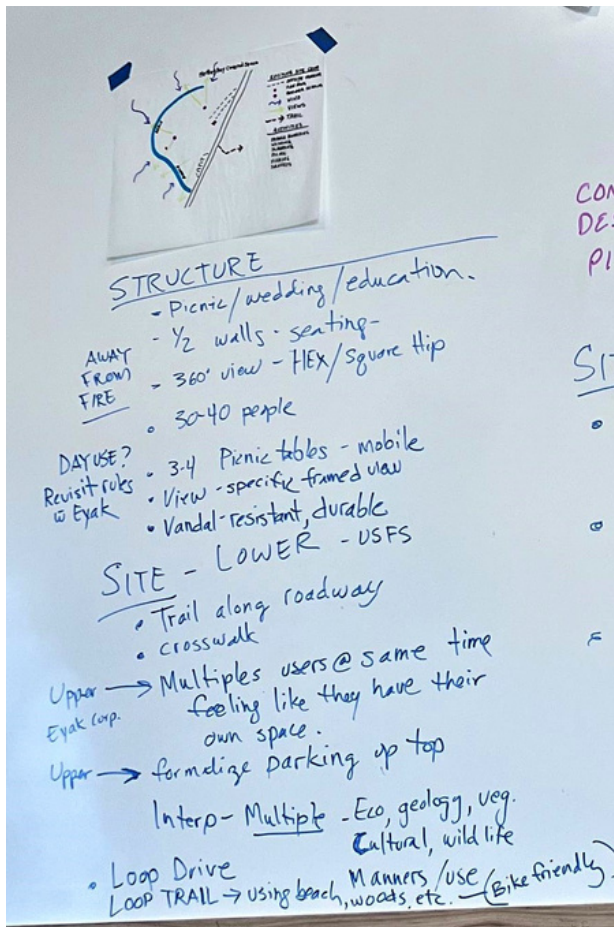 VIEWS
TRAIL
STRUCTURE
- Picnic/wedding/education.
- 1/2 walls - seating -
AWAY FROM FIRE
- 360° view - HEX/Square Hip
• 30-40 people
DAY USE?
Revisit rules
w Eyak
• 3-4 Picnic tables - mobile
• View - specific framed view
• Vandal-resistant, durable
SITE - LOWER - USFS
• Trail along roadway
• crosswalk
Upper → Multiples users @ same time
Eyak Corp.
feeling like they have their
own space.
Upper → formalize parking up top
Interp - Multiple - Eco, geology, veg.
Cultural, wildlife
• Loop Drive
Manners/use
LOOP TRAIL → using beach, woods, etc. - (Bike friendly)
CON
DE
PI
SI